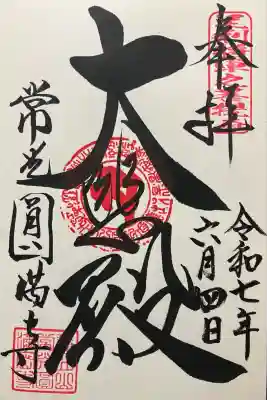 奉拝
令和七年
六月四日
大悲殿
常光圓満寺